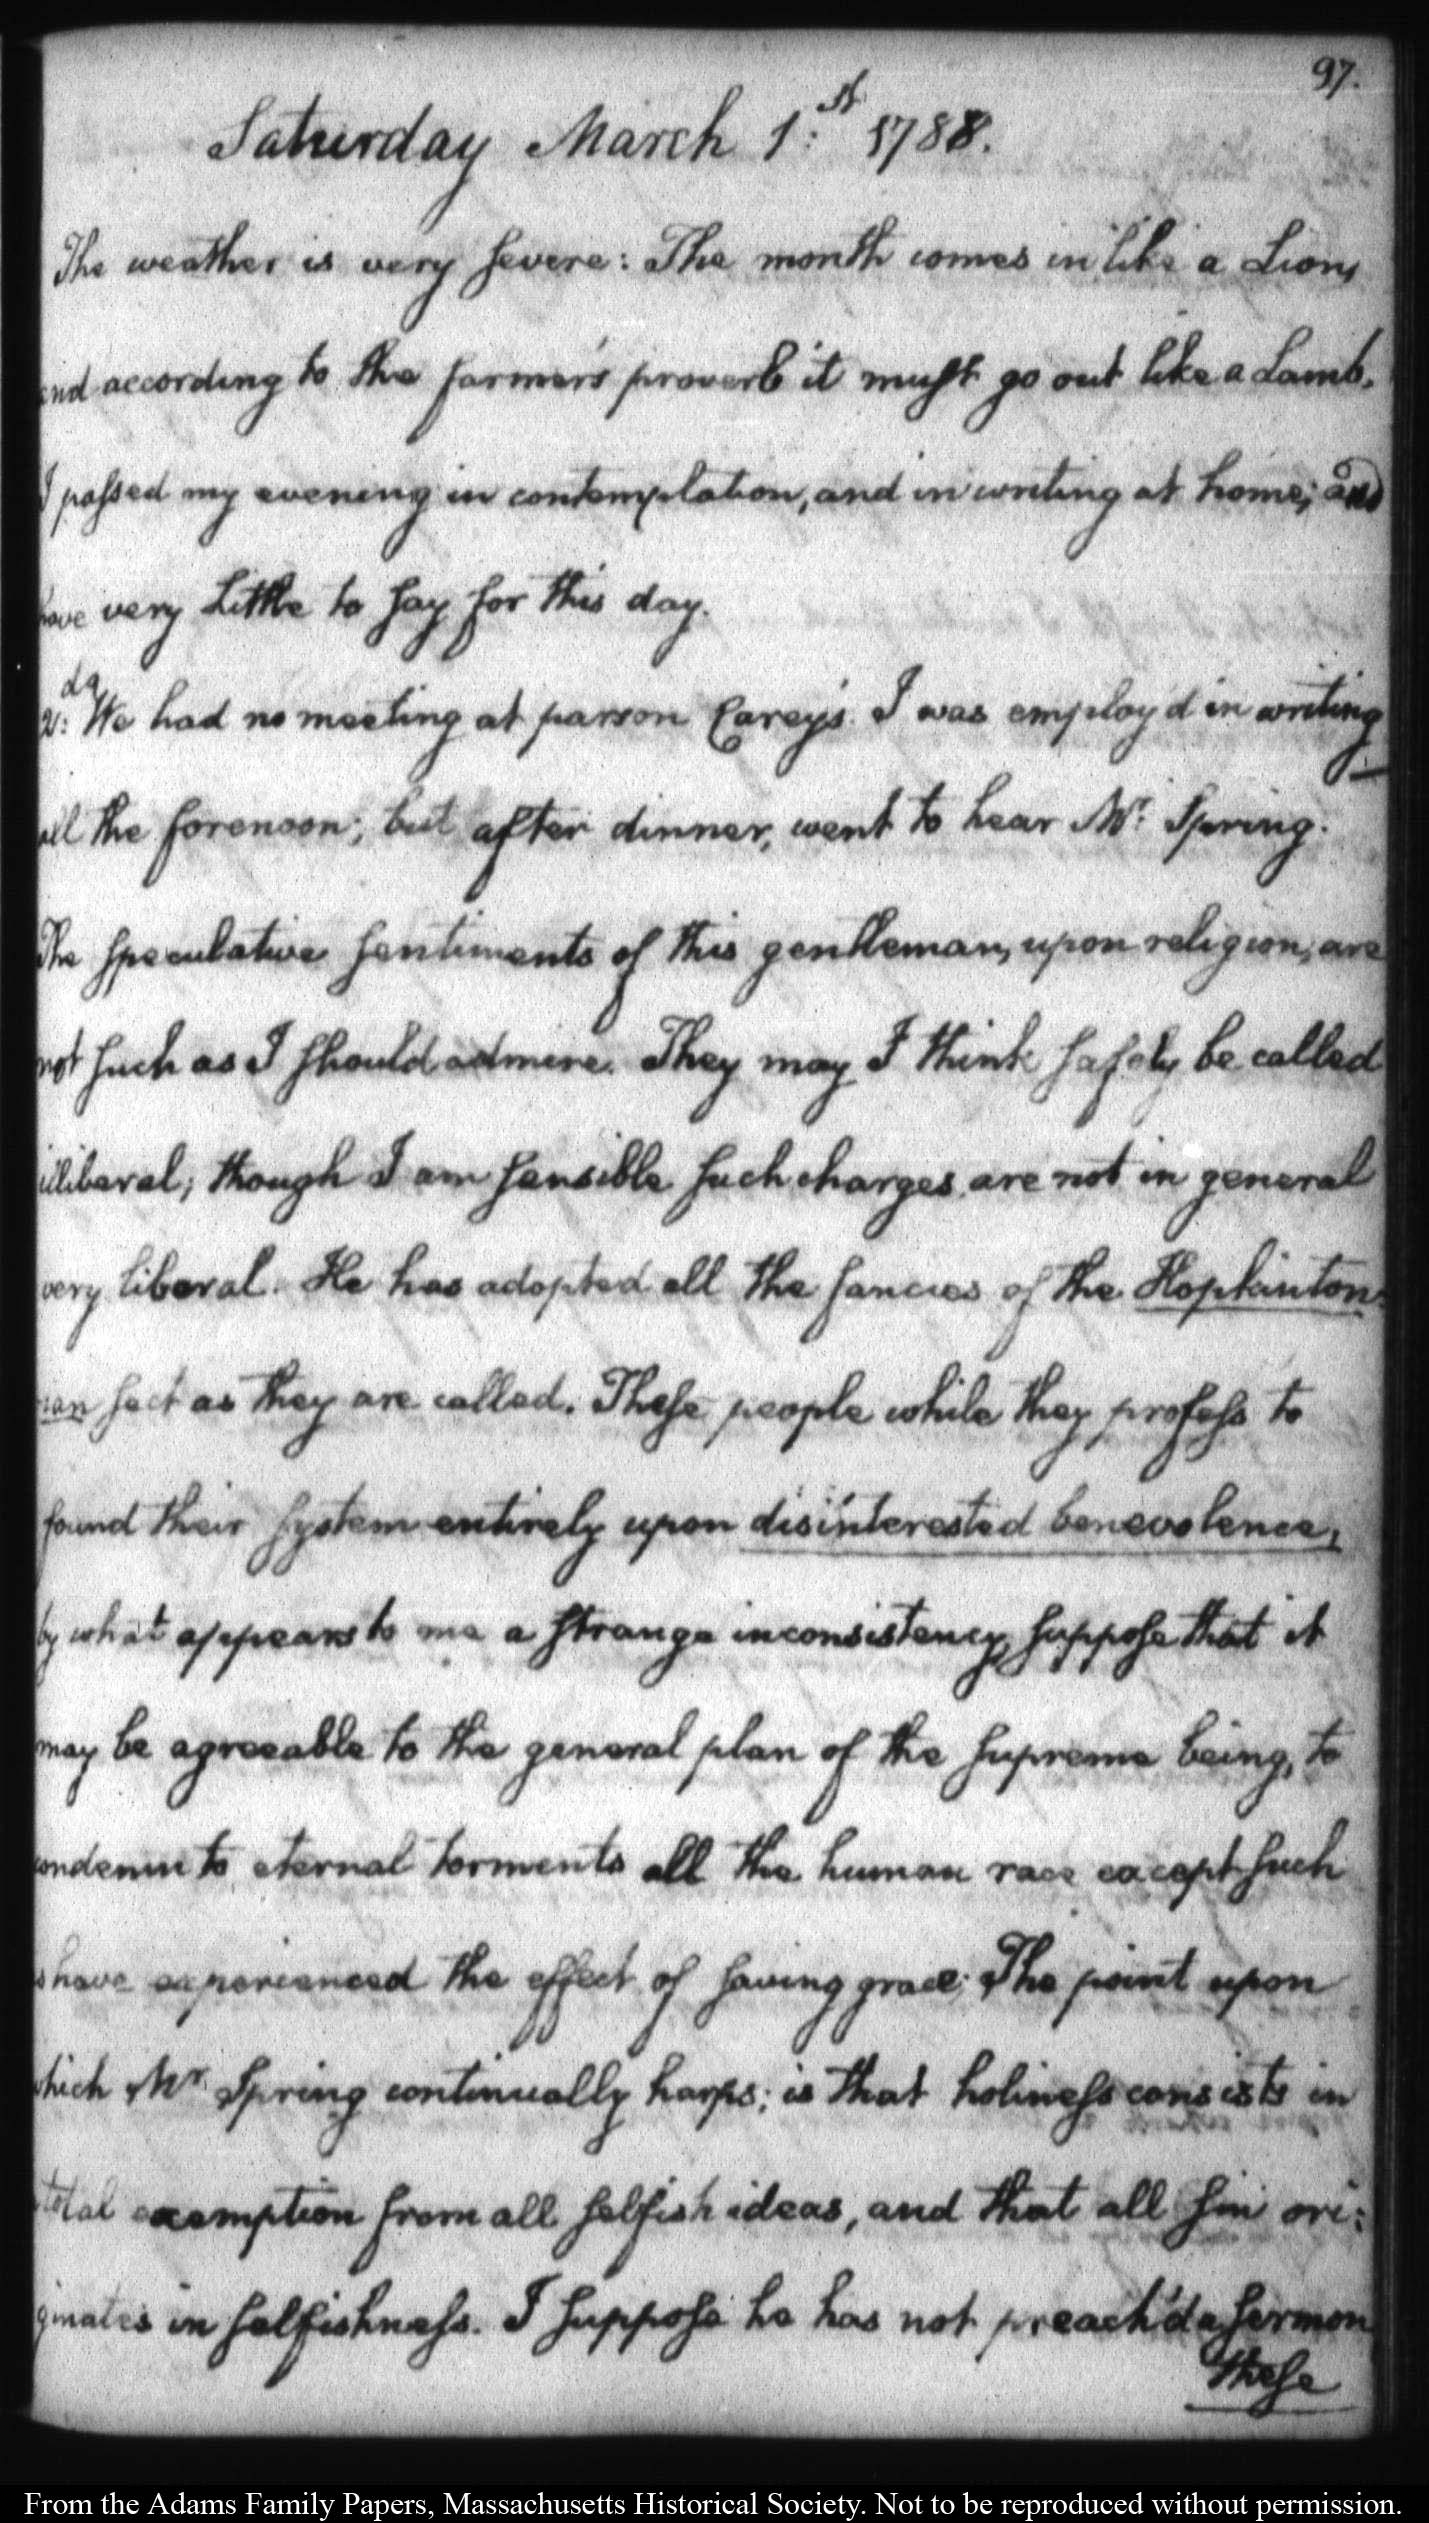 97.
Saturday March 1:st 1788.
The weather is very severe: The month comes in like a Lion,
and according to the farmer's proverb it must go out like a Lamb.
I passed my evening in contemplation, and in writing at home; and
have very little to say for this day.
2:d We had no meeting at parson Carey's. I was employ'd in writing
all the forenoon; but after dinner, went to hear Mr. Spring.
The speculative sentiments of this gentleman, upon religion, are
not such as I should admire. They may I think safely be called
illiberal; though I am sensible such charges are not in general
very liberal. He has adopted all the fancies of the Hopkinton-
ian sect as they are called. These people while they profess to
found their system entirely upon disinterested benevolence,
by what appears to me a strange inconsistency, suppose that it
may be agreeable to the general plan of the supreme being, to
condemn to eternal torments all the human race except such
as have experienced the effect of saving grace. The point upon
which Mr. Spring continually harps; is that holiness consists in
total exemption from all selfish ideas, and that all sin ori:
ginates in selfishness. I suppose he has not preach'd a sermon
these
From the Adams Family Papers, Massachusetts Historical Society. Not to be reproduced without permission.